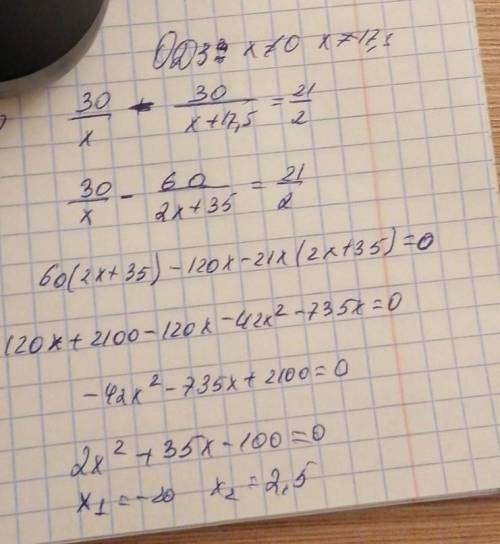 ОДЗ: x≠0 x≠17,5
30/x - 30/(x+17,5) = 21/2
30/x - 60/(2x+35) = 21/2
60(2x+35)-120x-21x(2x+35)=0
120x+2100-120x-42x²-735x=0
-42x²-735x+2100=0
2x²+35x-100=0
x₁=-20 x₂=2,5